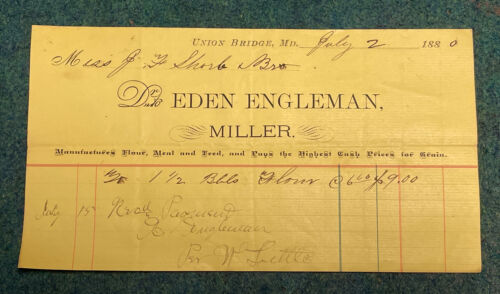 UNION BRIDGE, MD. July 2 1880
Miss J F Shorb & Bro
Dr. to EDEN ENGLEMAN,
MILLER.
Manufactures Flour, Meal and Feed, and Pays the Highest Cash Prices for Grain.
To 1 1/2 Bbls Flour @ 6.00 $9.00
July 15 Recd Payment
E. Engleman
Per W Little